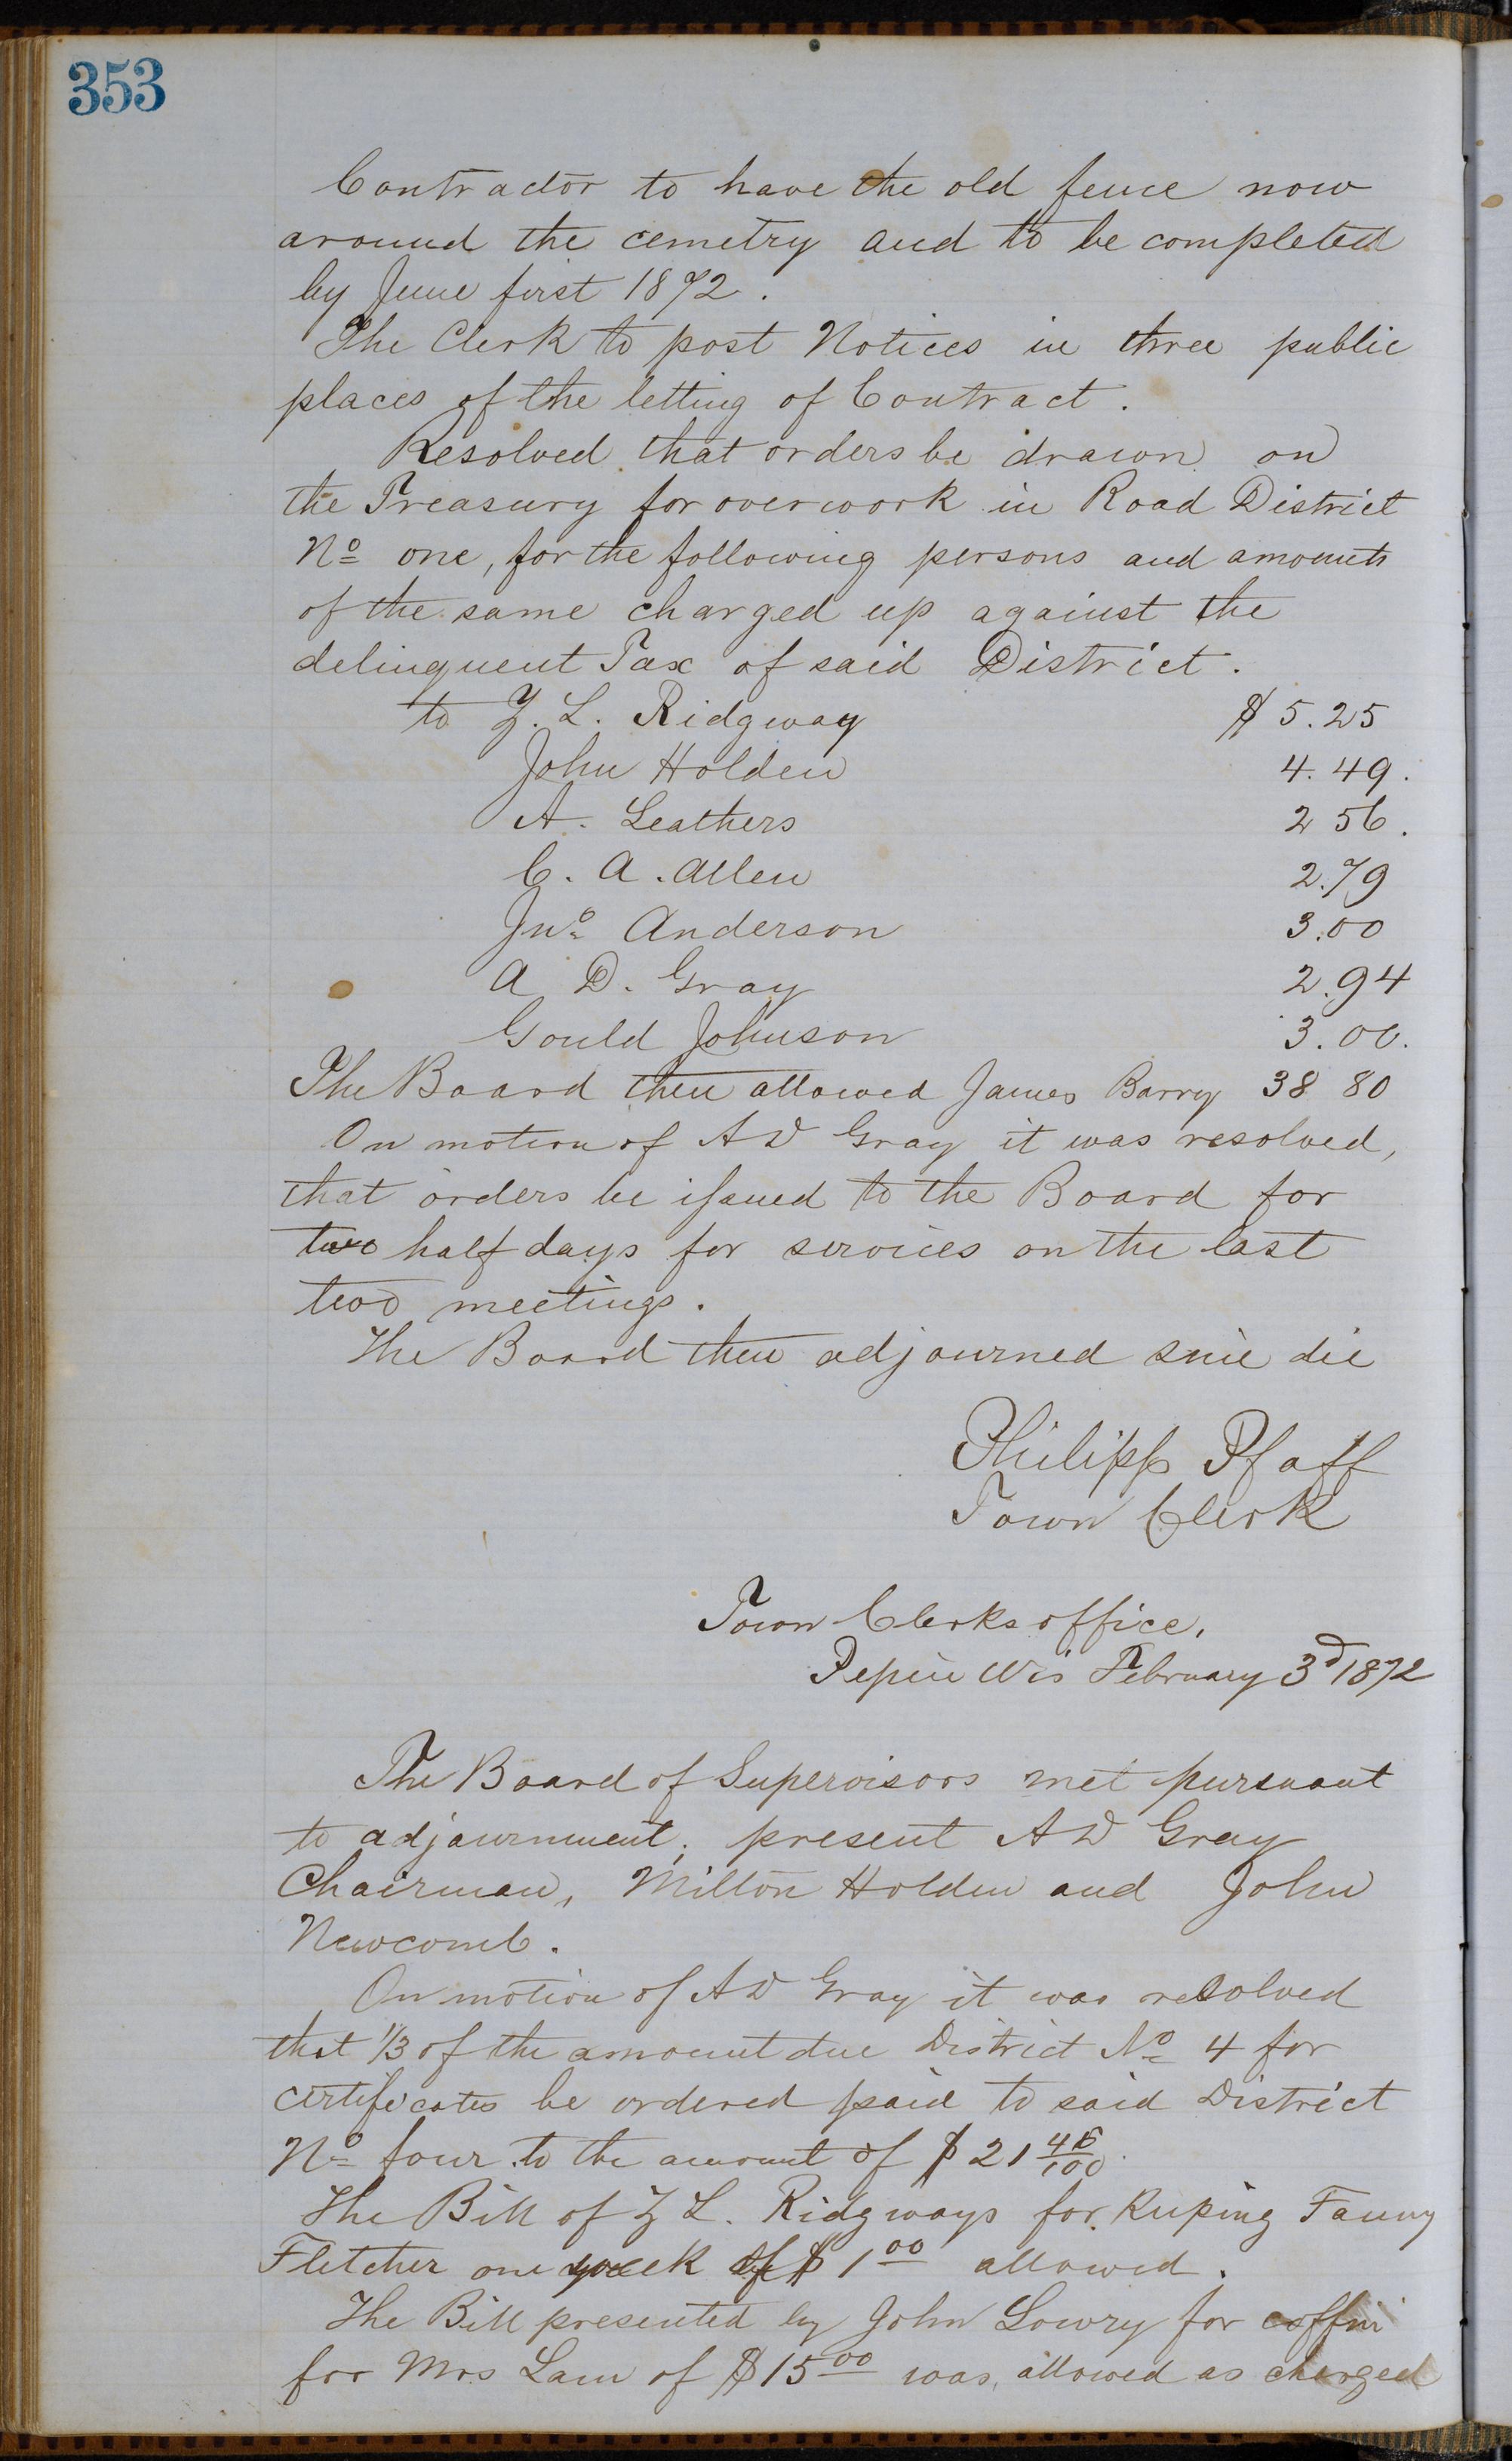 353
Contractor to have the old fence now
around the cemetry and to be completed
by June first 1872.
The Clerk to post Notices in three public
places of the letting of Contract.
Resolved that orders be drawn on
the Treasury for overwork in Road District
No one, for the following persons and amounts
of the same charged up against the
delinquent Tax of said District.
to Z. L. Ridgway $ 5.25
John Holden 4.49.
A. Leathers 2 56.
C. A. Allen 2.79
Jno Anderson 3.00
A D. Gray 2.94
Gould Johnson 3.00.
The Board then allowed James Barry 38 80
On motion of A D Gray it was resolved,
that orders be issued to the Board for
two half days for services on the last
two meetings.
The Board then adjourned sine die
Philipp Pfaff
Town Clerk
Town Clerks office,
Pepin Wis February 3d 1872
The Board of Supervisors met pursuant
to adjournment; present A D Gray
Chairman, Milton Holden and John
Newcomb.
On motion of A D Gray it was resolved
that 1/3 of the amount due District No 4 for
certificates be ordered paid to said District
No four to the amount of $ 21
The Bill of Z L. Ridgways for keeping Fanny
Fletcher one week of $ 1 00 allowed.
The Bill presented by John Lowry for coffin
for Mrs Lam of $ 15 00 was, allowed as charged